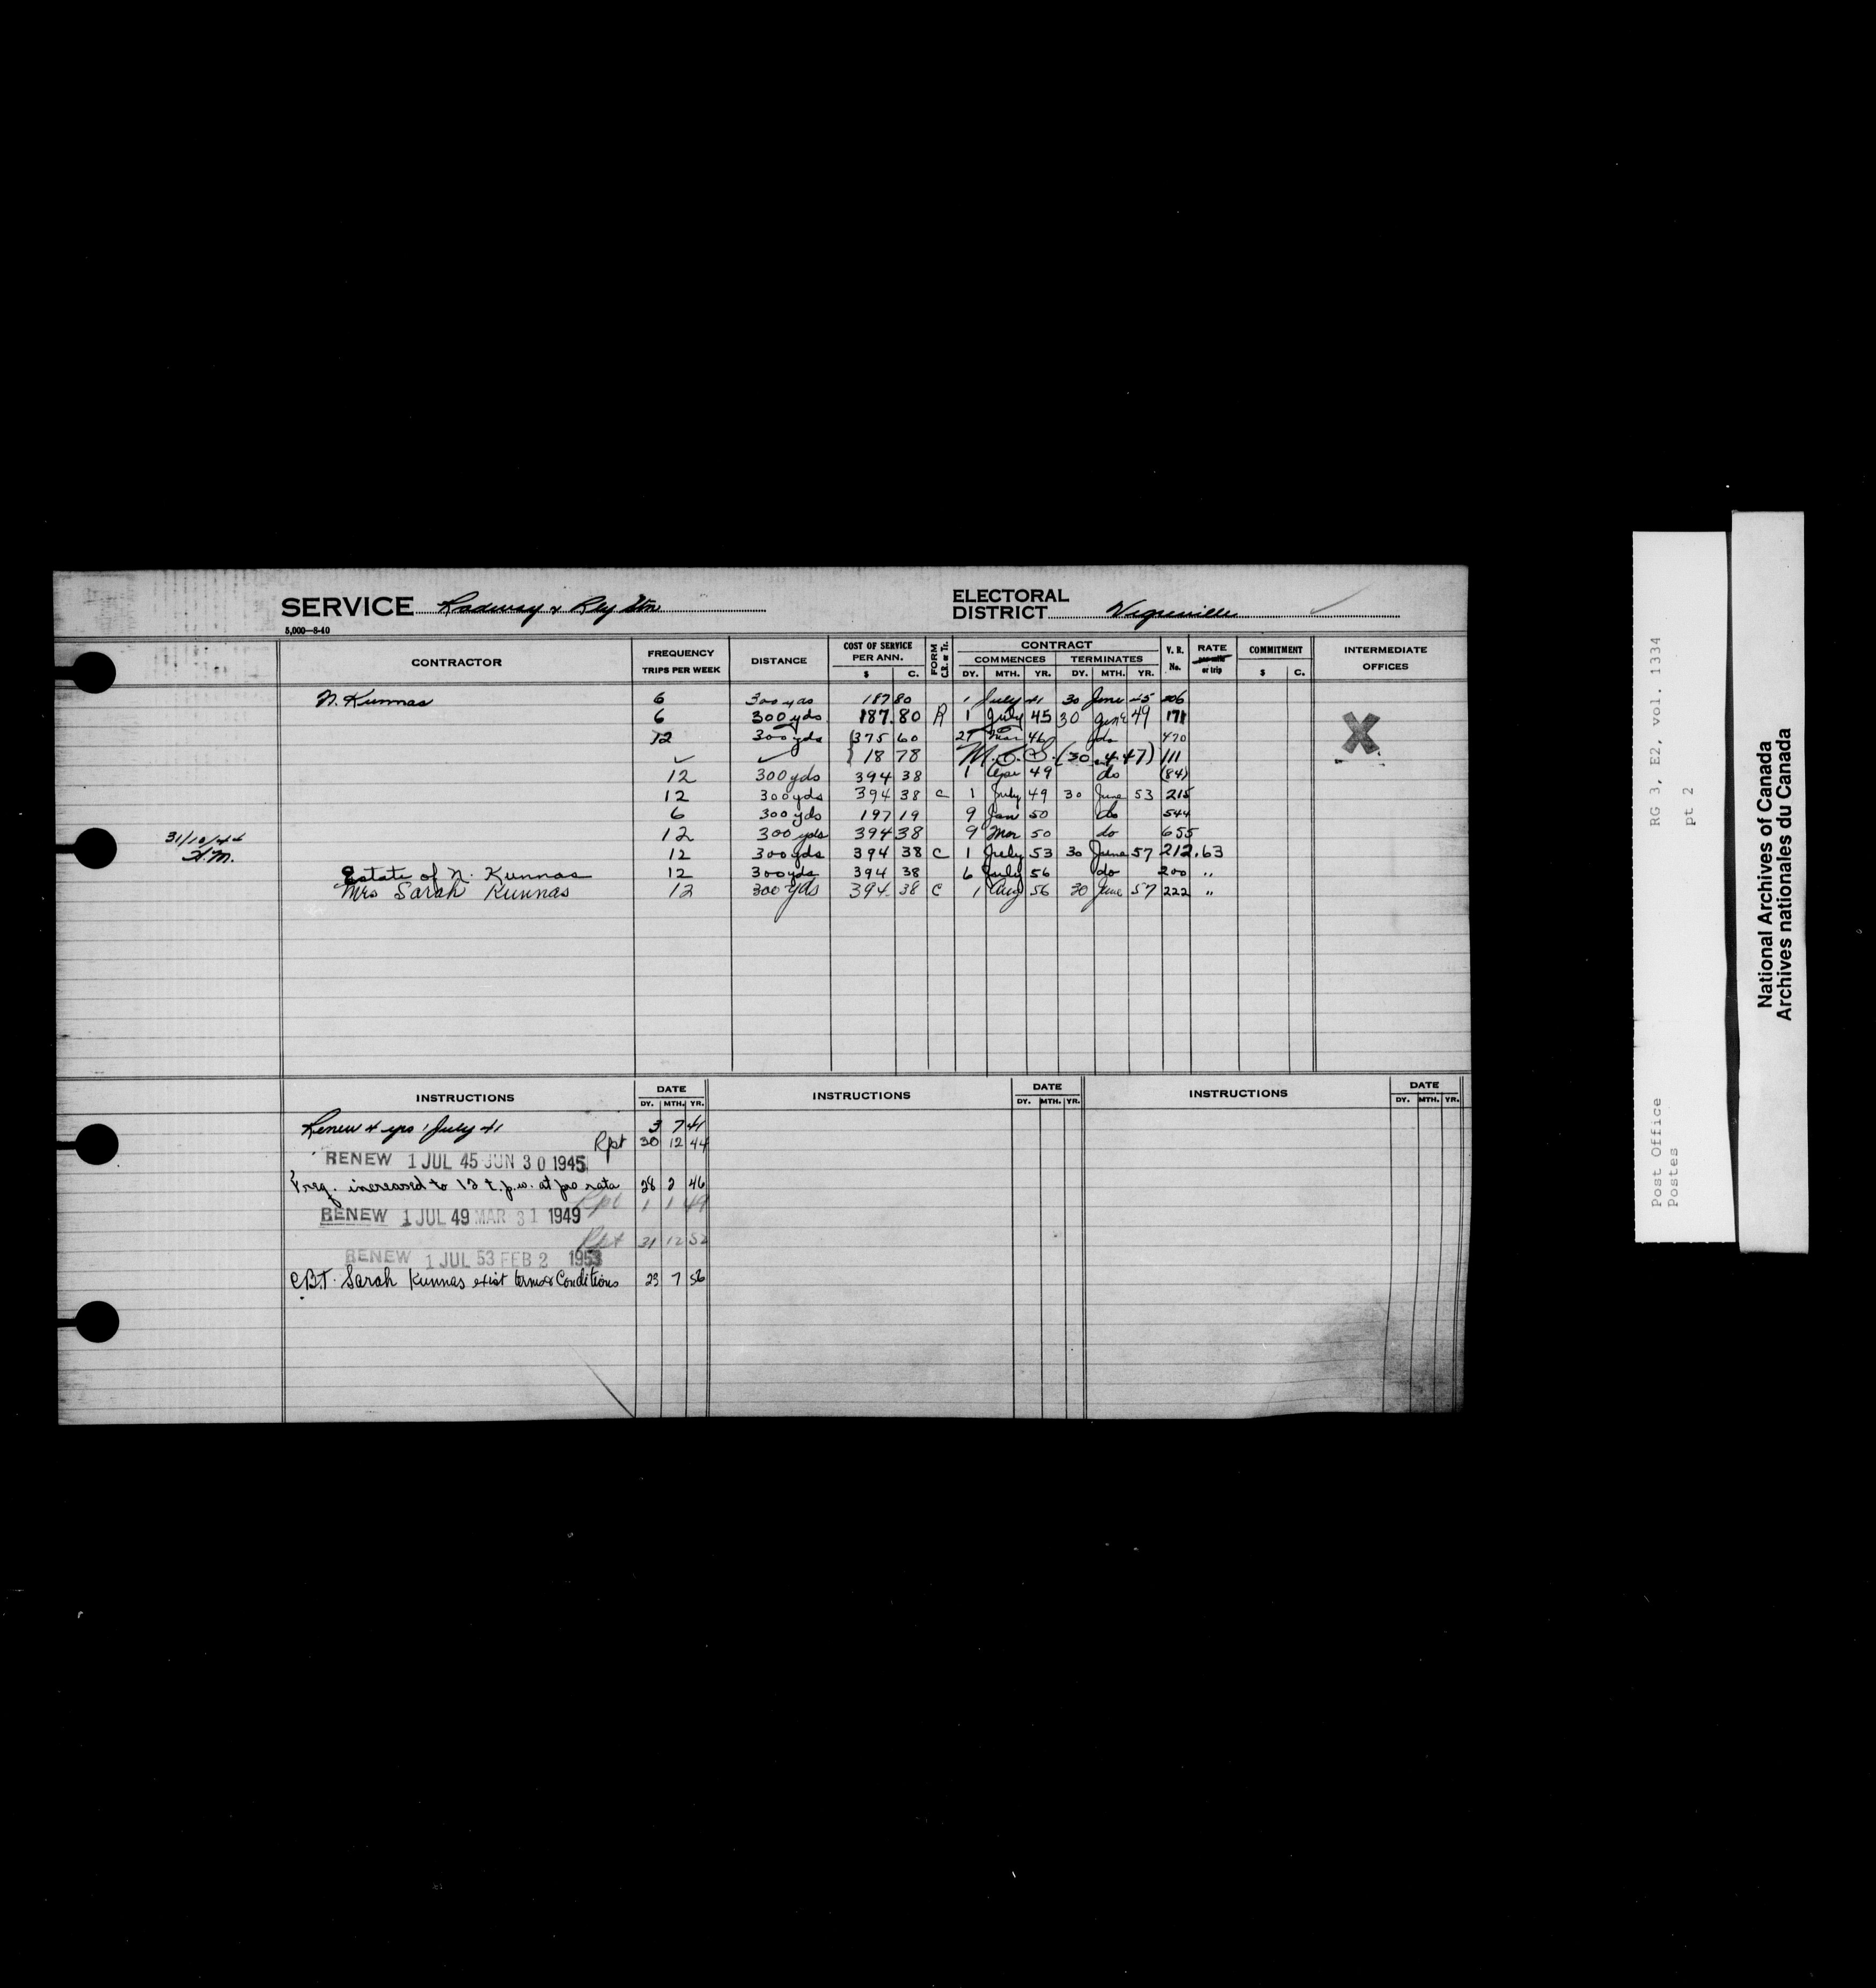 SERVICE Radway & Rly Stn
ELECTORAL DISTRICT Vegreville
5,000—8-40
CONTRACTOR FREQUENCY TRIPS PER WEEK DISTANCE COST OF SERVICE PER ANN. $ C. FORM C.R. or Tr. CONTRACT COMMENCES DY. MTH. YR. TERMINATES DY. MTH. YR. V. R. No. RATE per mile or trip COMMITMENT $ C. INTERMEDIATE OFFICES
N. Kunnas 6 300 yds 187 80 1 July 41 30 June 45 206
6 300 yds 187.80 R 1 July 45 30 June 49 171
12 300 yds 375 60 27 Mar 46 do 470
✓ ✓ 18 78 M.C.B. (30 4 47) 111
12 300 yds 394 38 1 Apr 49 do (84)
12 300 yds 394 38 C 1 July 49 30 June 53 215
6 300 yds 197 19 9 Jan 50 do 544
12 300 yds 394 38 9 Mar 50 do 655
31/10/44
H.M.
12 300 yds 394 38 C 1 July 53 30 June 57 212 .63
Estate of N. Kunnas 12 300 yds 394 38 6 July 56 do 200 "
Mrs Sarah Kunnas 12 300 yds 394 38 C 1 Aug 56 30 June 57 222 "
X
INSTRUCTIONS DATE DY. MTH. YR. INSTRUCTIONS DATE DY. MTH. YR. INSTRUCTIONS DATE DY. MTH. YR.
Renew 4 yrs 1 July 41 3 7 41
Rpt 30 12 44
RENEW 1 JUL 45 JUN 30 1945
Freq. increased to 12 t.p.w. at pro rata 28 2 46
Rpt 1 1 49
RENEW 1 JUL 49 MAR 31 1949
Rpt 31 12 52
RENEW 1 JUL 53 FEB 2 1953
C.B.T. Sarah Kunnas exist terms & Conditions 23 7 56
RG 3, E2, vol. 1334
pt 2
Post Office
Postes
National Archives of Canada
Archives nationales du Canada